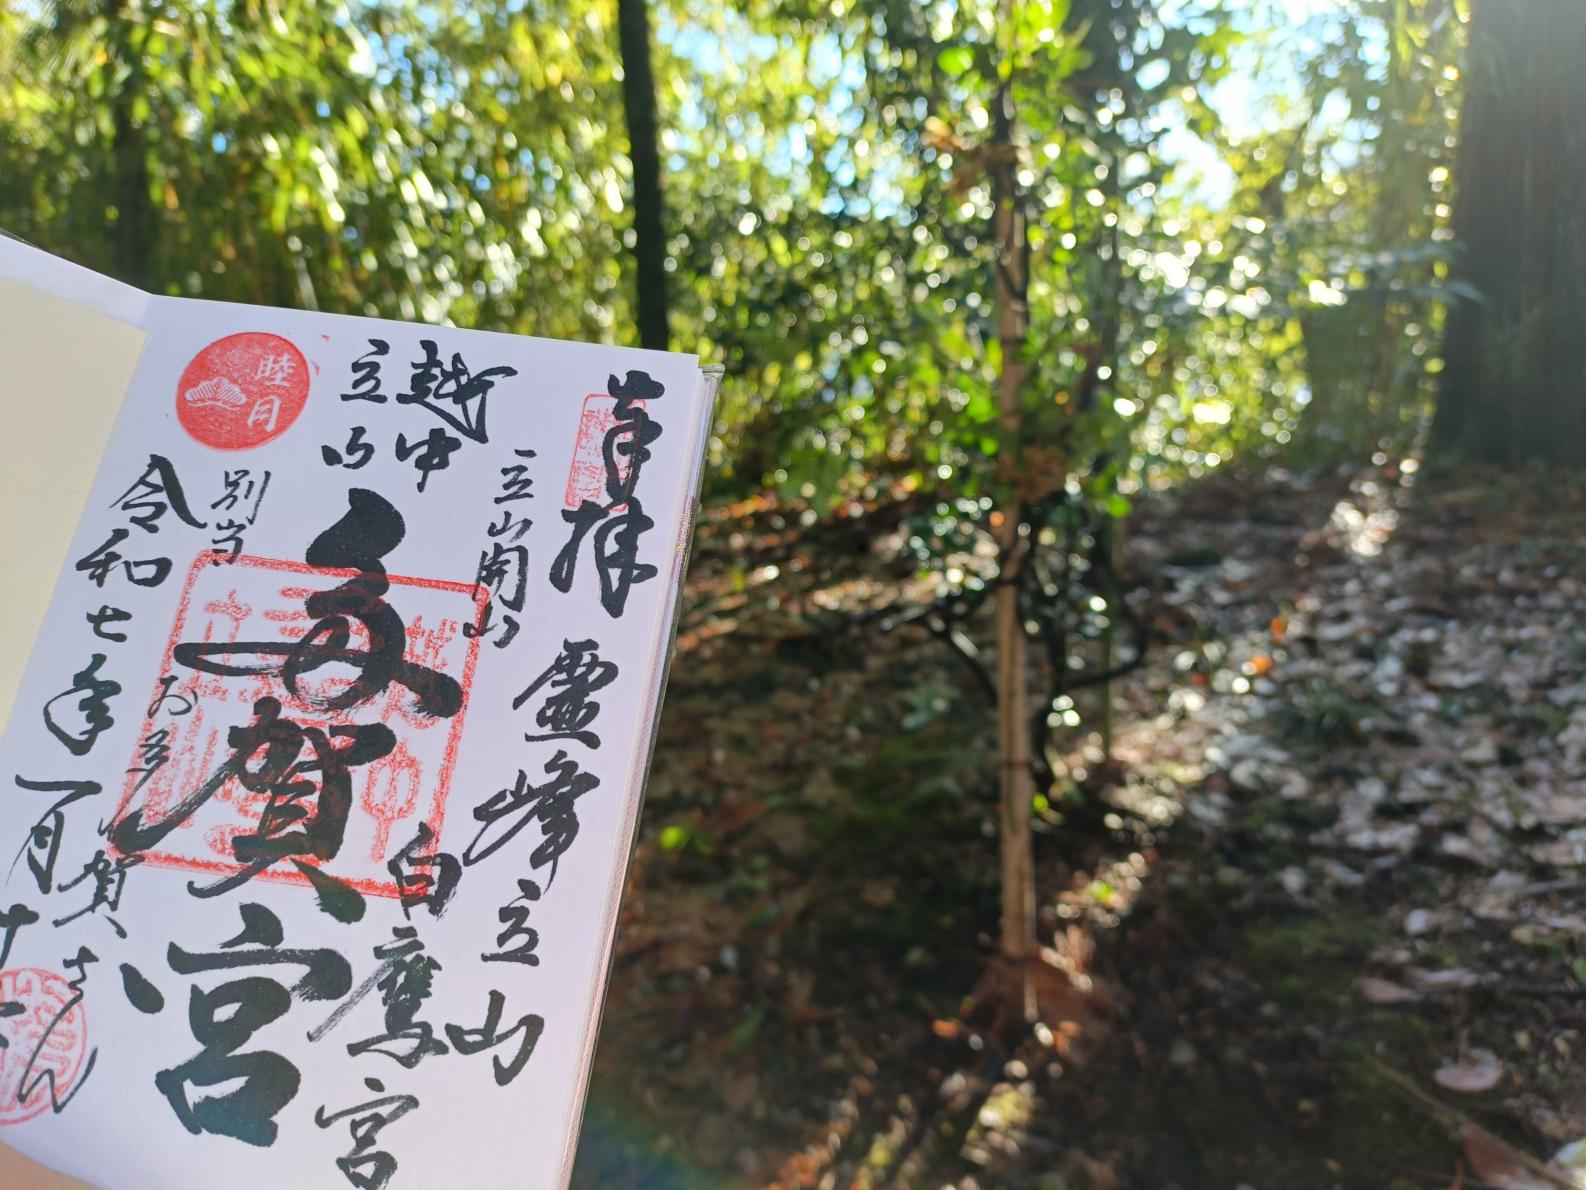 奉拝
霊峰立山
立山開山
白鷹宮
越中
立山
多賀宮
睦月
別当
お多賀さん
令和七年一月十